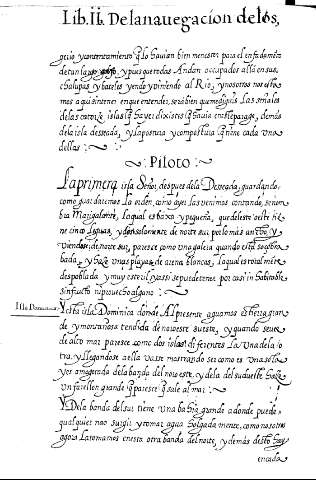 Lib. II. De la navegacion de los,
gocio y contentamiento q̃ lo havian bien menester para el enfadamiẽto
de tan largo y pues que todos Andan occupados alla en sus
chalupas y bateles yendo y viniendo al Rio, y nosotros no estamos
mos aqui sin tener en que entender, sera bien que me digais Las señales
de las catorze islas q̃ hayer dixistes q̃ havia en este parage, demas
de la isla desseada, y la postura y compostura q̃ tiene cada una
dellas :~
~: Piloto :~
La primera isla Señor, despues de la Desseada, guardando,
como guardaremos La orden, como ayer las venimos contando, se nombra
bra Marigalante, la qual es baxa y pequeña, que de leste oeste tiene
ne cinco leguas, y de norte sur por lo mas ancho y
viendo de norte sur, paresce como una galera quando esta
bada, y haze unas playas de arena blancas, la qual es toda
despoblada y muy esteril y assi se puede tener por casi in habitable
sin fructo ni provecho alguno :~
Isla Dominica
Y esta isla Dominica donde Al presente aguamos es tierra grande
de y montañosa tendida de noroeste sueste, y quando se vee
de alto mar paresce como dos islas diferentes La una de la otra
tra, y llegandose a ella va se mostrando ser como es una sola
y es amogotada de la banda del noroeste, y de la del sudueste haze
un farellon grande q̃ paresce q̃ sale al mar :~
Y De la banda del sur tiene una bahia grande a donde puede
qualquier nao surgir y tomar agua holgadamente, como nosotros
agora La tomamos en esta otra banda del norte, y demas desto hay
en cada